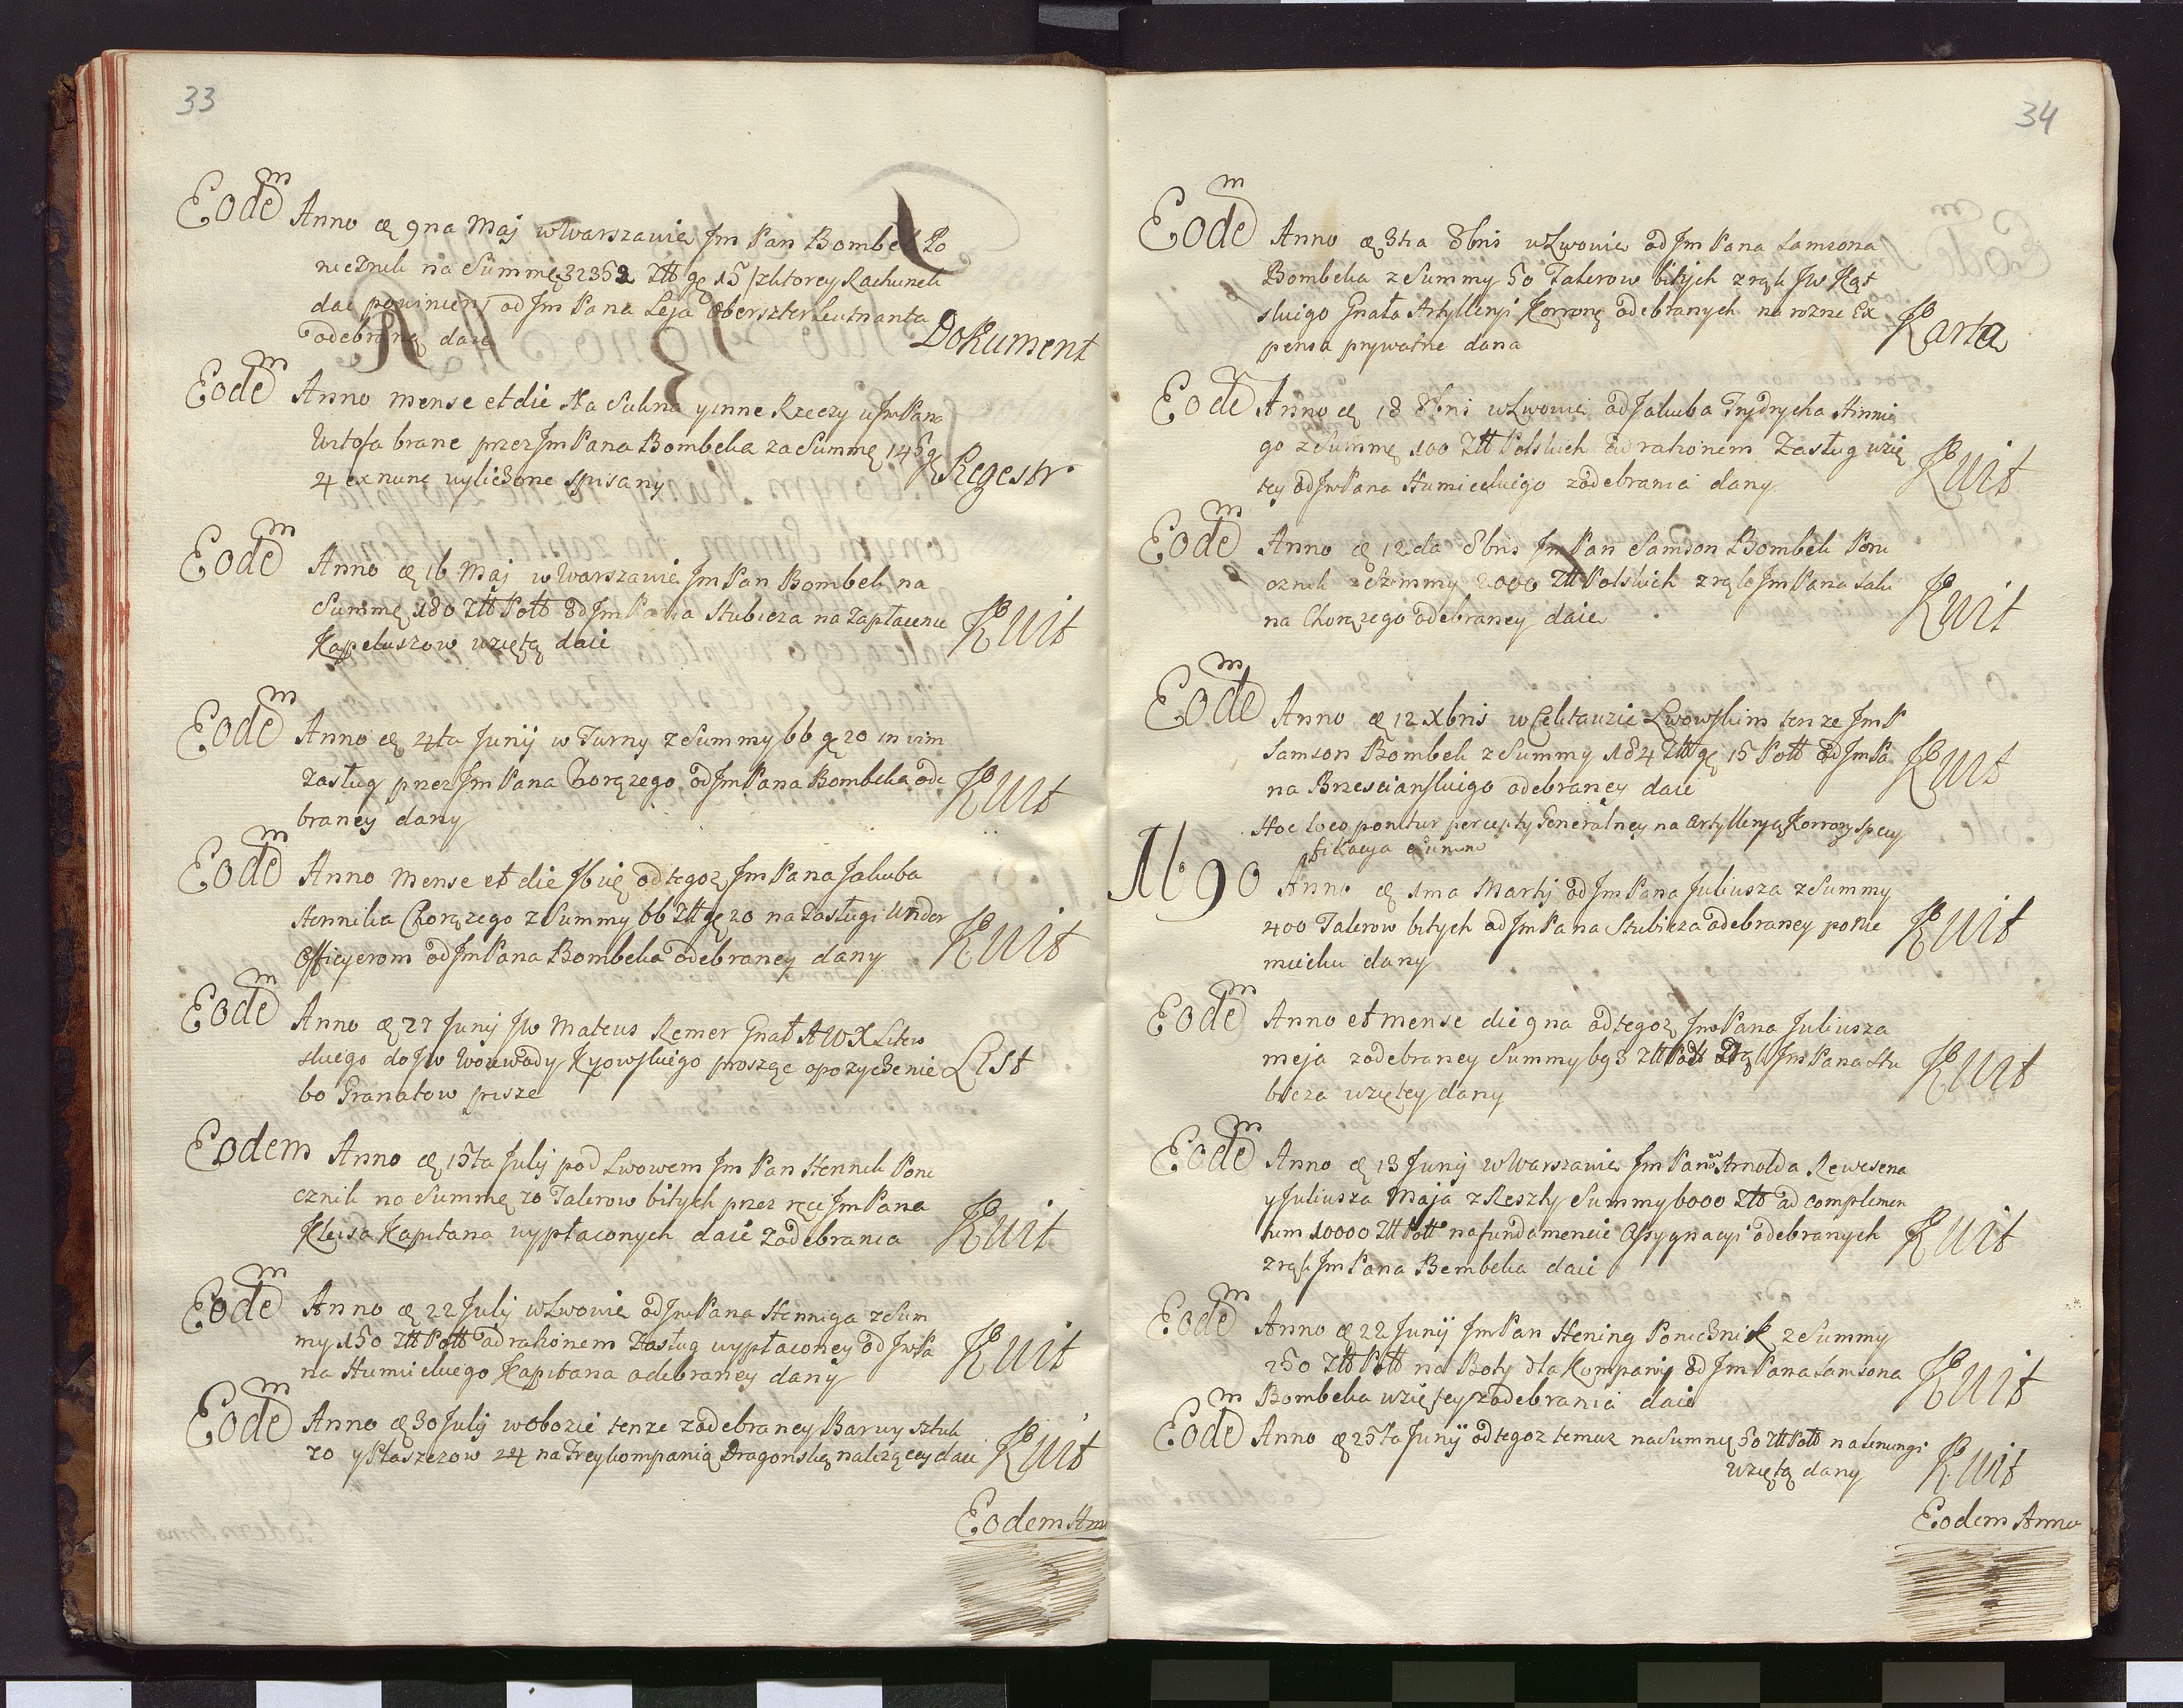 33
Eodem Anno æ 9na Maj w Warszawie Jm Pan Bombek Po
rucznik na Summę 32352 Złł gę 15 /z ktorey Rachunek
dac powinien/ od Jm Pana Leja Obersterleutnanta
odebraną daie Dokument
Eodem Anno mense et die Na Sukna y inne Rzeczy u Jm Pana
brane przez Jm Pana Bombeka za Summę 145 g
4 ex nunc wyliczone spisany Regestr
Eodem Anno æ 16 Maj w Warszawie Jm Pan Bombek na
Summę 180 Złł Poll od Jm Pana Stubicza na Zapłacenie
Kapeluszow wziętą daie Kwit
Eodem Anno æ 4ta Junij w Turny z Summy 66 g 20 in vim
Zasług przez Jm Pana Chorązego od Jm Pana Bombeka ode
braney dany Kwit
Eodem Anno mense et die od tegoz Jm Pana Jakuba
Hennika Chorązego z Summy 66 Złł gę 20 na Zasługi Under
Officyerom od Jm Pana Bombeka odebraney dany Kwit
Eodem Anno æ 27 Junij Jw Mateus Remer Gnał A W X Litew
skiego do Jw Woiewody Kyowskiego prosząc o pozyczenie
60 Granatow pisze List
Eodem Anno æ 15ta Julij pod Lwowem Jm Pan Hennek Poru
cznik na Summę 20 Talerow bitych przez ręce Jm Pana
Kleysa Kapitana wypłaconych daie z odebrania Kwit
Eodem Anno æ 22 Julij w Lwowie od Jm Pana Henniga z Sum
my 150 Złł Poll ad rationem Zasług wypłaconey od Jw Pa
na Humieckiego Kapitana odebraney dany Kwit
Eodem Anno æ 30 Julij w obozie tenze z odebraney Barwy sztuk
20 y Płaszczow 24 na Freykompanią Dragonską nalezącey daie Kwit
Eodem Anno
34
Eodem Anno æ 3tia 8bris w Lwowie od Jm Pana Samsona
Bombeka z Summy 50 Talerow bitych z rąk Jw Kąt
skiego Gnała Artyllerji Korronę odebranych na rozne Ex
pensa prywatne dana Karta
Eodem Anno æ 18 8bris w Lwowie od Jakuba Frydrycha Hinni
go z Summę 100 Złł Polskich ad rationem Zasług wzię
tey od Jw Pana Humieckiego z odebrania dany Kwit
Eodem Anno æ 12da 8bris Jm Pan Samson Bombek Poru
cznik z Summy 2000 Złł Polskich z rąk Jm Pana Sali
na Chorązego odebraney daie Kwit
Eodem Anno æ 12 Xbris w Cekauzie Lwowskim tenze Jm P
Samson Bombek z Summy 184 Złł gę 15 Poll od Jm Pa
na Brzescianskiego odebraney daie Kwit
Hoc loco ponitur percepty Generalney na Artylleryą Korrong specy
fikacya
1690 Anno æ 1ma Martij od Jm Pana Juliusza z Summy
400 Talerow bitych od Jm Pana Stubicza odebraney po Nie
miecku dany Kwit
Eodem Anno et mense die 9na od tegoz Jm Pana Juliusza
meja z odebraney Summy 693 Złł Poll z rąk Jm Pana Stu
bicza wziętey dany Kwit
Eodem Anno æ 13 Junij w Warszawie Jm Pano Arnolda Rewesena
y Juliusza Maja z Reszty Summy 6000 Złł ad complemen
tum 10000 Złł Poll na fundamencie Assygnacyi odebranych
z rąk Jm Pana Bembeka daie Kwit
Eodem Anno æ 22 Junij Jm Pan Hening Porucznik z Summy
250 Złł Poll na Boty dla Kompanij od Jm Pana Samsona
Bombeka wziętey z odebrania daie Kwit
Eodem Anno æ 25ta Junij od tegoz temuz na Summę 50 Złł Poll na lenungi
wziętą dany Kwit
Eodem Anno